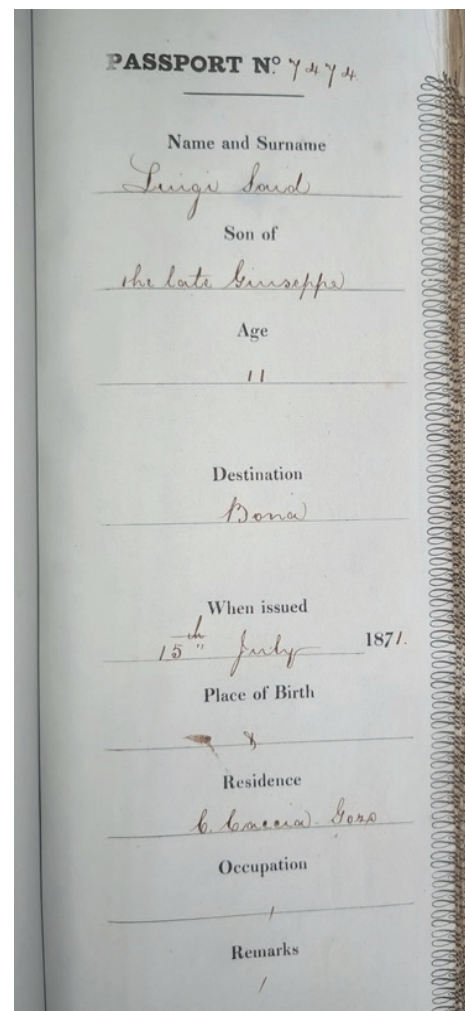 PASSPORT Nº 7474.
Name and Surname
Luigi Said
Son of
the late Giuseppe
Age
11
Destination
Bona
When issued
15th July 1871.
Place of Birth
&
Residence
C. Caccia Gozo
Occupation
/
Remarks
/